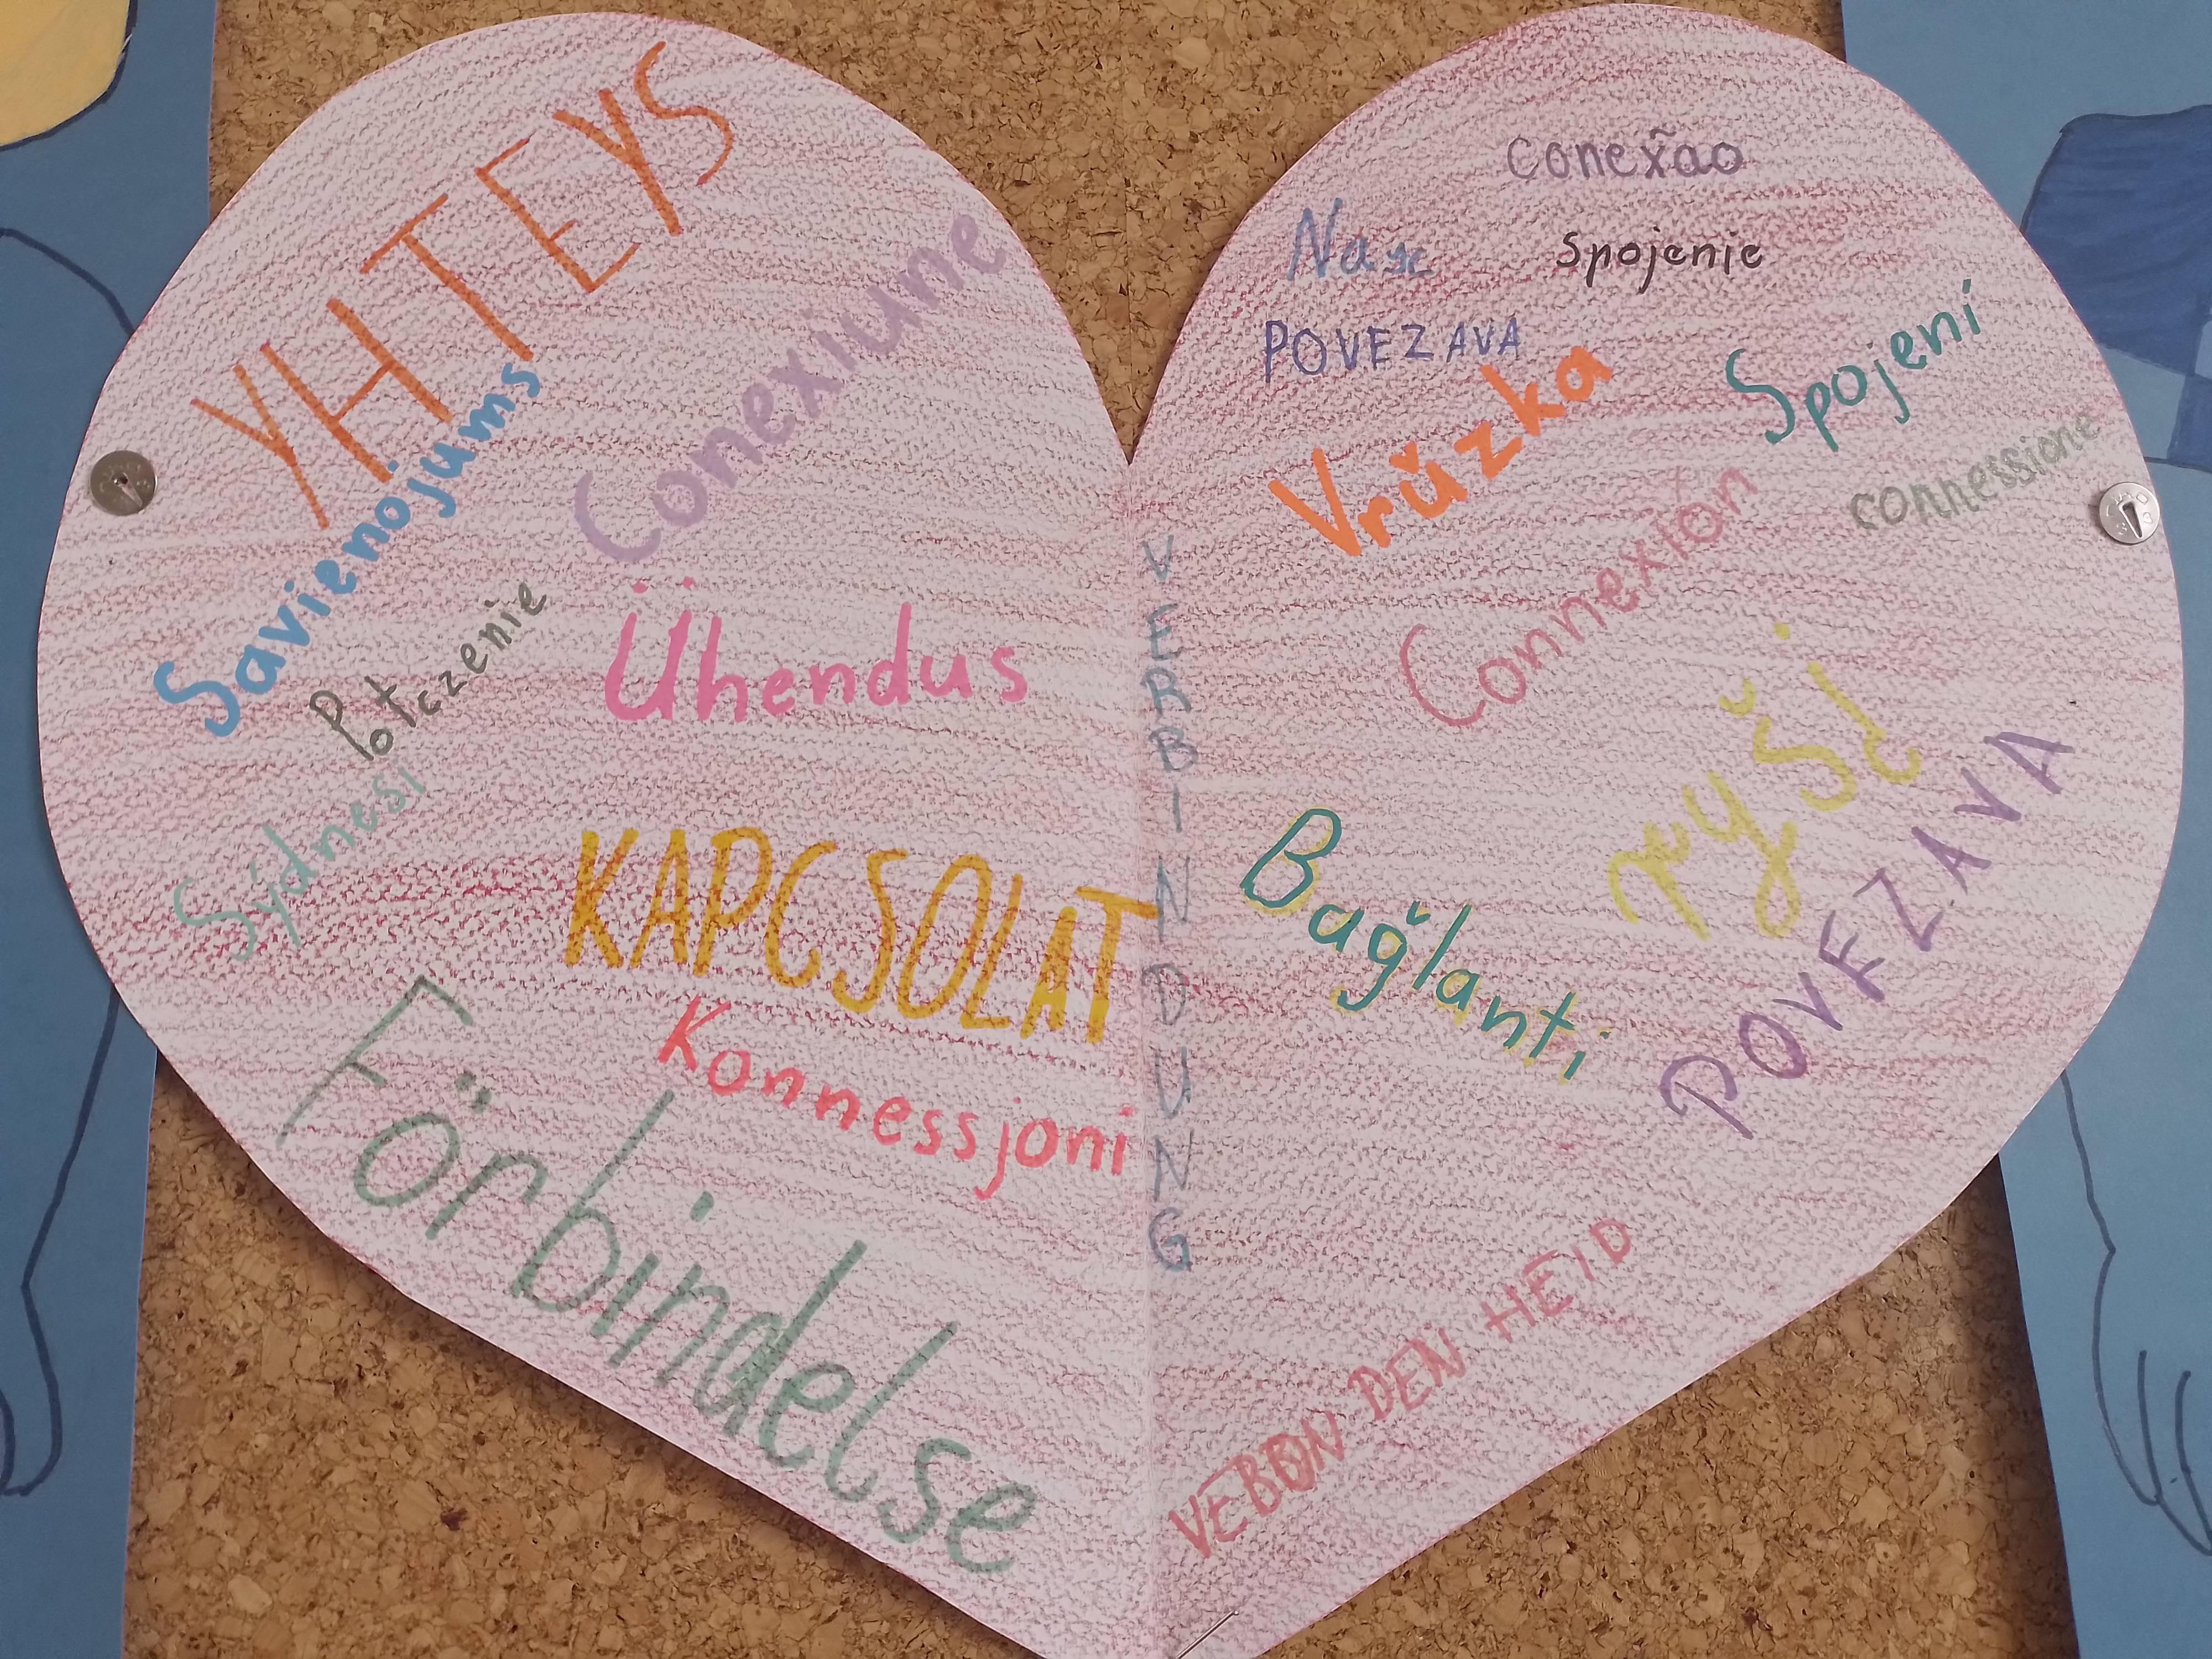 YHTEYS
Conexiune
Savienojums
Potczenie
Ühendus
Sýdnesi
KAPCSOLAT
Konnessjoni
Förbindelse
VERBINDUNG
conexão
spojenie
POVEZAVA
Vrŭzka
Spojení
connessione
Connexion
ryšį
Bağlanti
POVEZAVA
VEBON DEN HEID